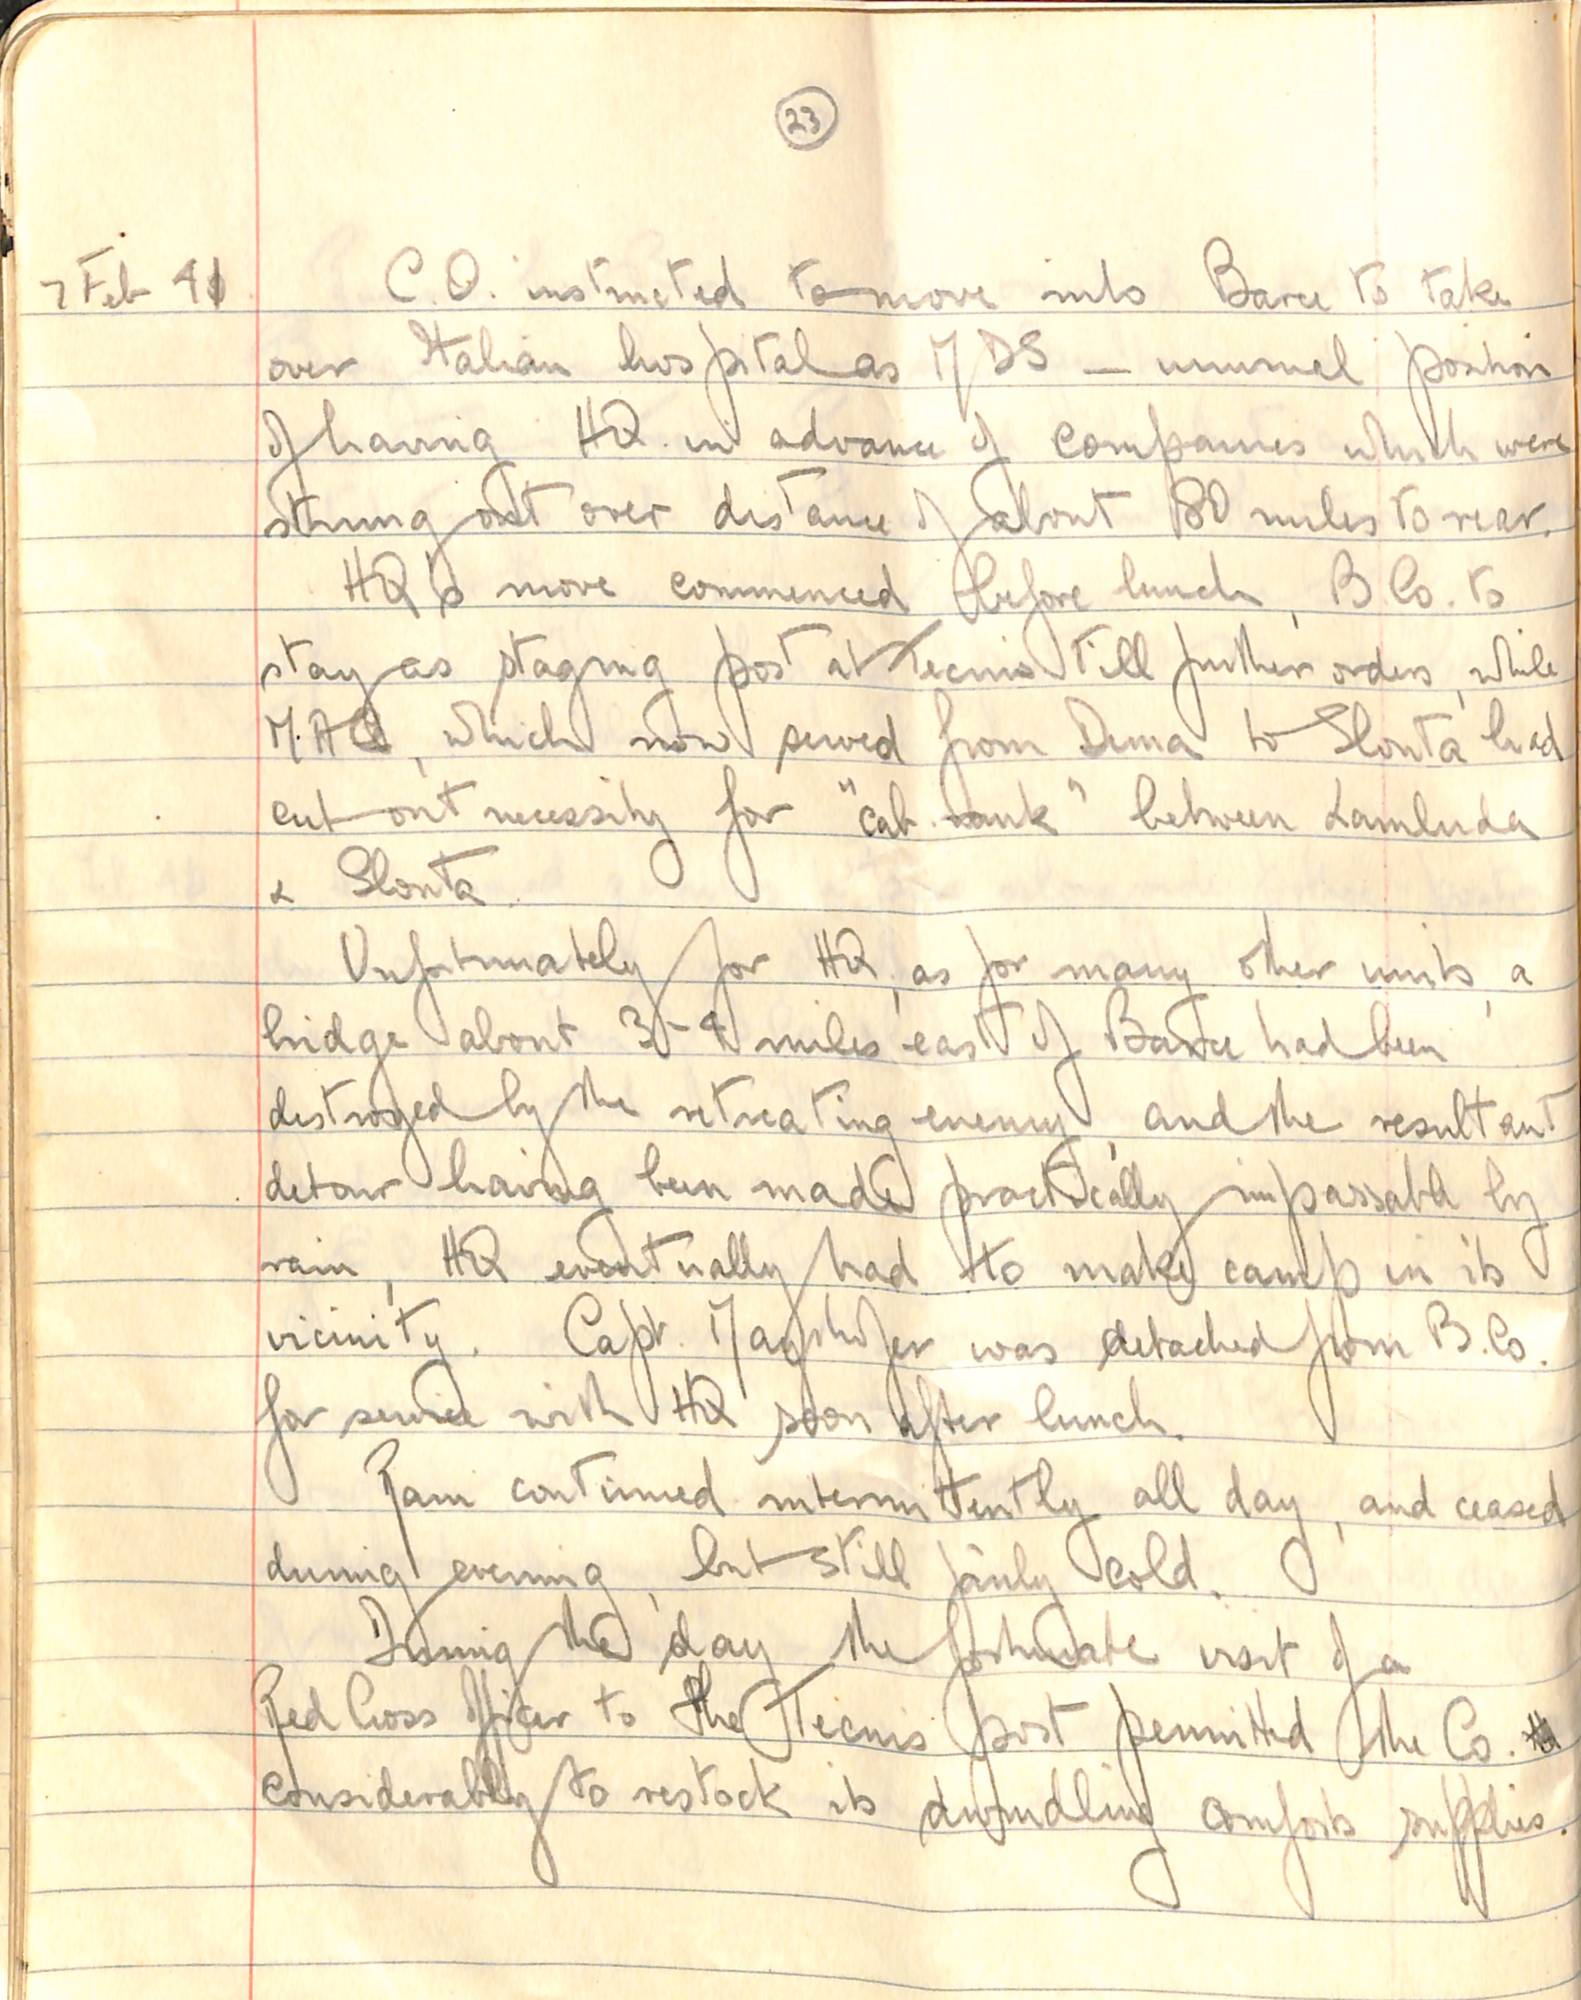 23
7 Feb 41 C.O. instructed to move into Barce to take
over Italian hospital as MDS — unusual position
of having HQ in advance of companies which were
strung out over distance of about 80 miles to rear.
HQ's move commenced before lunch, B Co. to
stay as staging post at Tecnis till further orders, while
M.A.C, which now served from Derna to Slonta had
cut out necessity for "cab rank" between Lamluda
& Slonta.
Unfortunately for HQ, as for many other units, a
bridge about 3-4 miles east of Barce had been
destroyed by the retreating enemy, and the resultant
detour having been made practically impassable by
rain, HQ eventually had to make camp in its
vicinity. Capt. Mayrhofer was detached from B.Co.
for service with HQ soon after lunch.
Rain continued intermittently all day, and ceased
during evening, but still fairly cold.
During the day the fortunate visit of a
Red Cross Officer to the Tecnis post permitted the Co.
considerably to restock its dwindling comforts supplies.